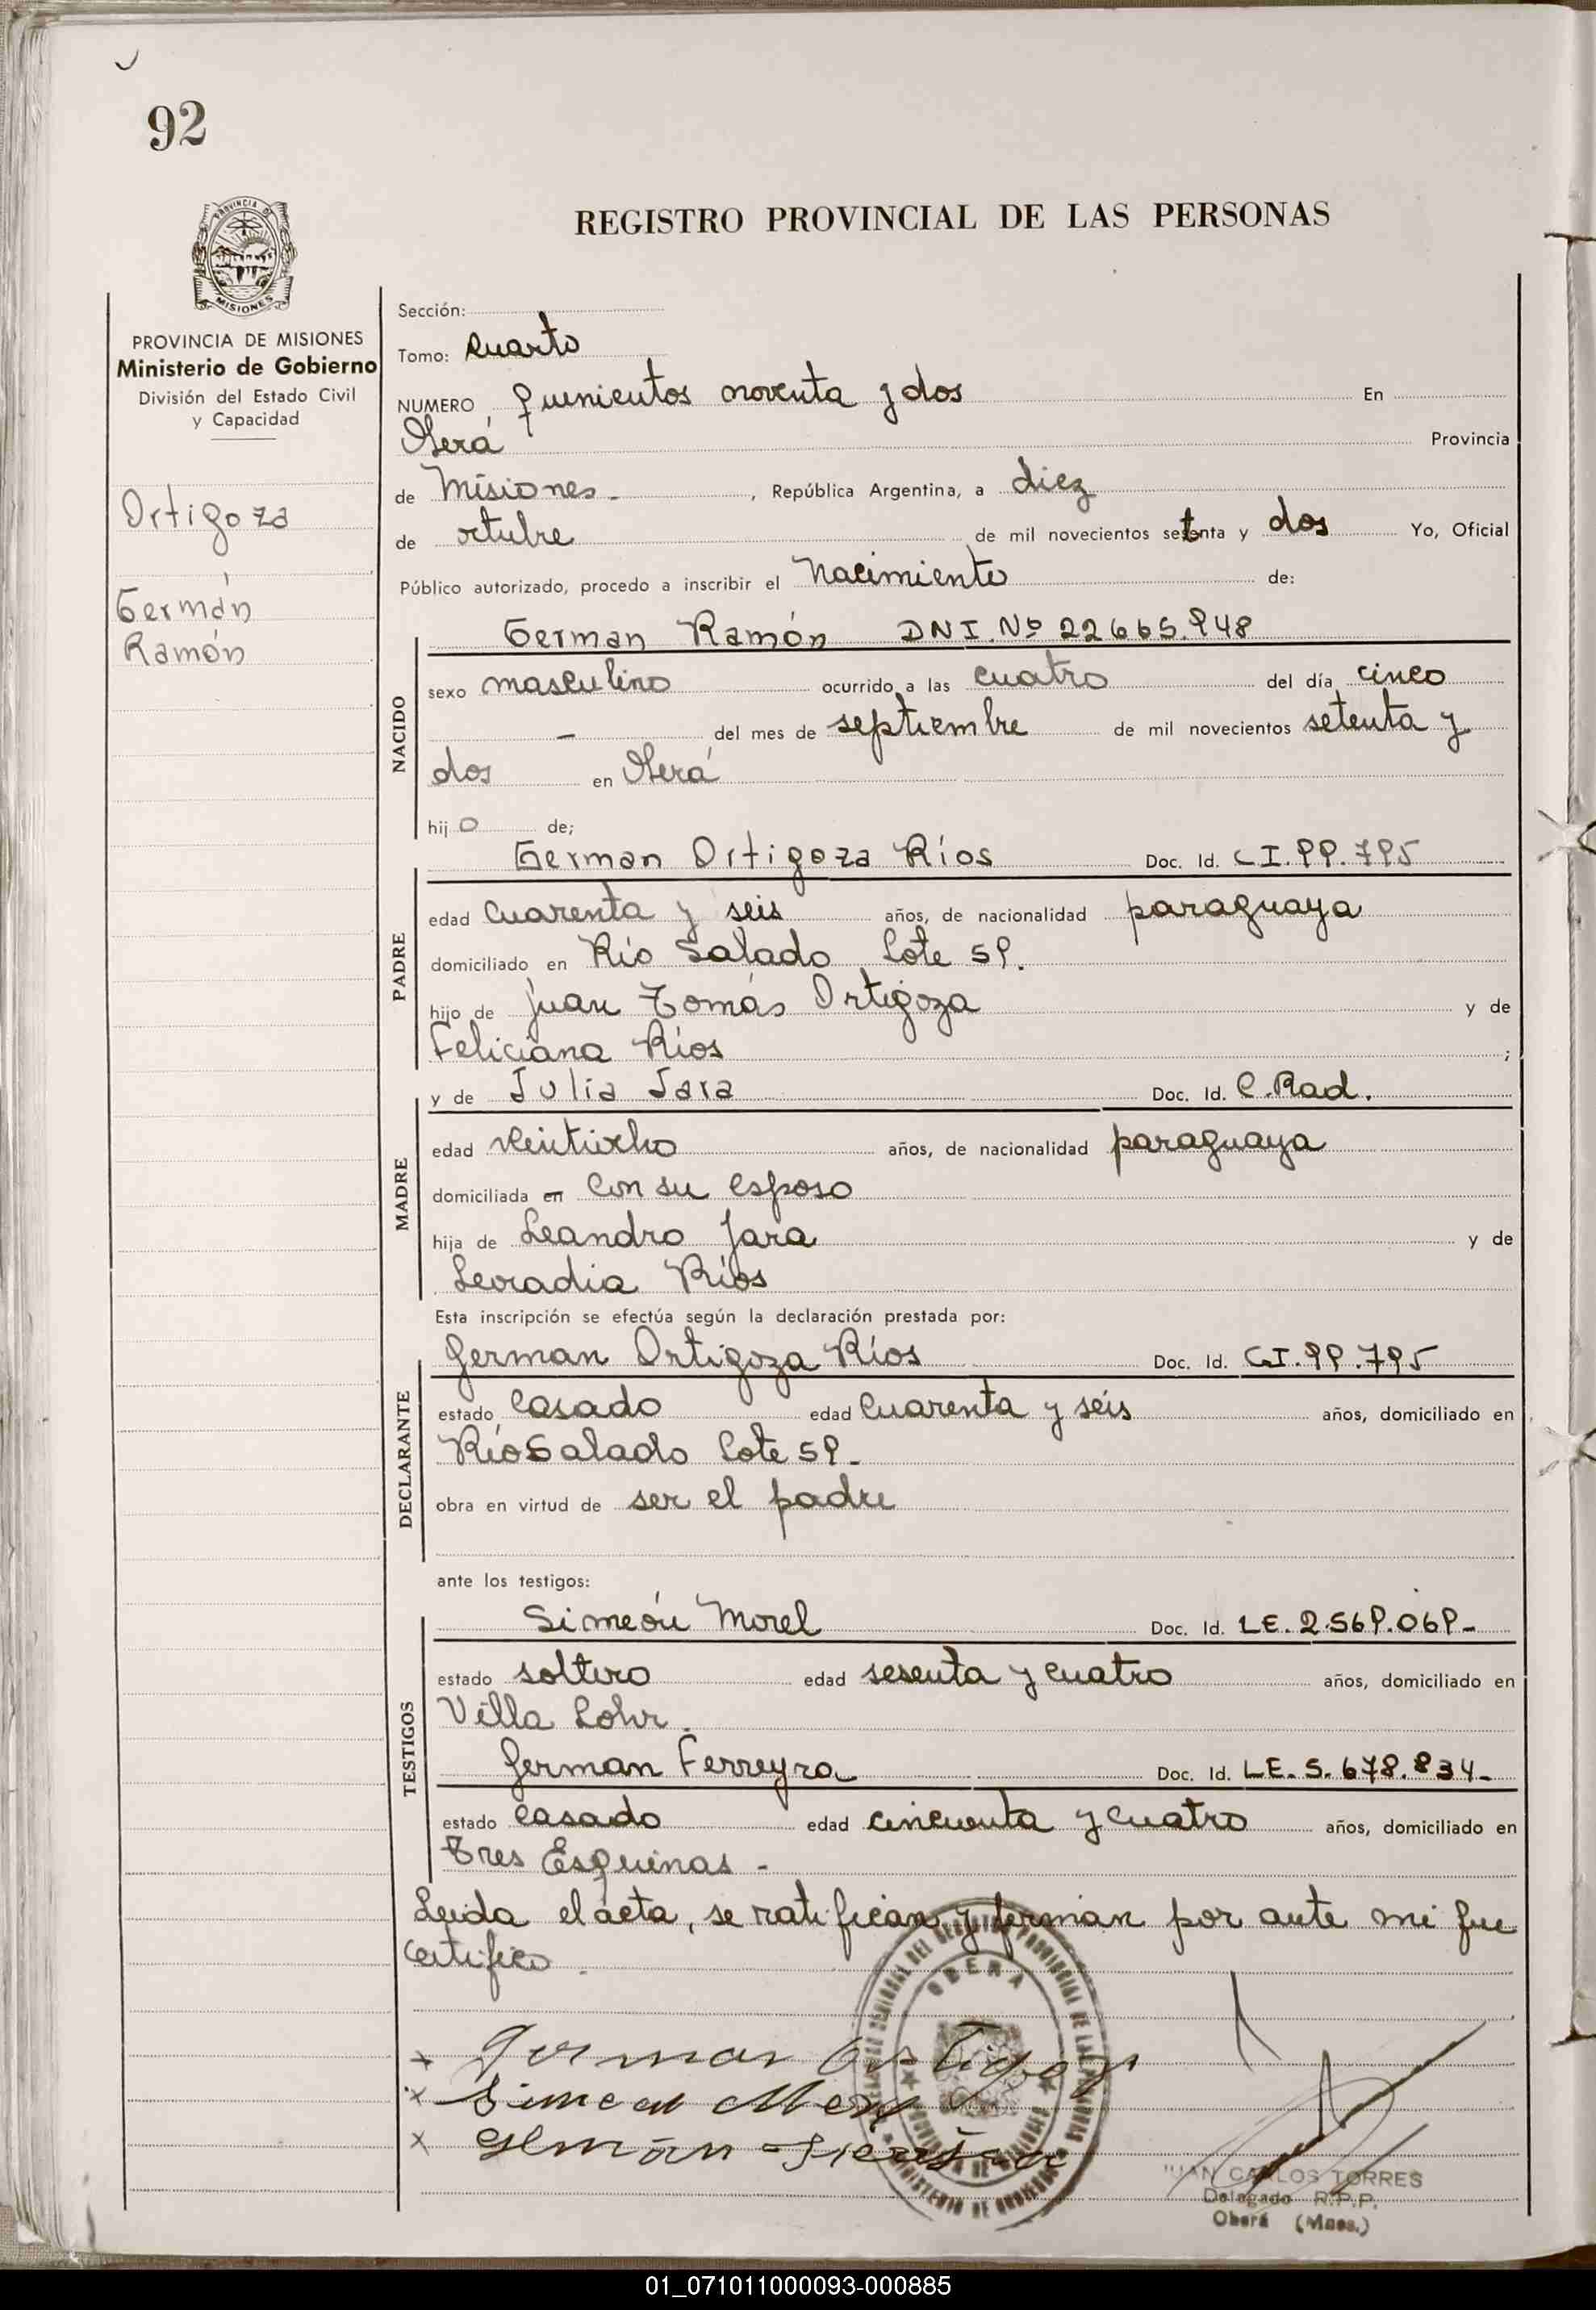 92
REGISTRO PROVINCIAL DE LAS PERSONAS
PROVINCIA DE MISIONES
MISIONES
PROVINCIA DE MISIONES
Ministerio de Gobierno
División del Estado Civil
y Capacidad
Ortigoza
Germán
Ramón
Sección:
Tomo: Cuarto
NUMERO quinientos noventa y dos En
Oberá Provincia
de Misiones - , República Argentina, a diez
de octubre de mil novecientos setenta y dos Yo, Oficial
Público autorizado, procedo a inscribir el Nacimiento de:
NACIDO
German Ramón DNI. Nº 22665.948
sexo masculino ocurrido a las cuatro del día cinco
- del mes de septiembre de mil novecientos setenta y
dos en Oberá
hijo de;
PADRE
German Ortigoza Ríos Doc. Id. CI.99.795
edad cuarenta y seis años, de nacionalidad paraguaya
domiciliado en Río Salado Lote 59.
hijo de Juan Tomás Ortigoza y de
Feliciana Ríos ;
MADRE
y de Julia Jara Doc. Id. C.Rad.
edad veintiocho años, de nacionalidad paraguaya
domiciliada en con su esposo
hija de Leandro Jara y de
Leocadia Ríos
Esta inscripción se efectúa según la declaración prestada por:
DECLARANTE
German Ortigoza Ríos Doc. Id. CI.99.795
estado casado edad cuarenta y seis años, domiciliado en
Río Salado Lote 59-
obra en virtud de ser el padre
ante los testigos:
TESTIGOS
Simeón Morel Doc. Id. LE. 2.569.069-
estado soltero edad sesenta y cuatro años, domiciliado en
Villa Lohr.
German Ferreyra Doc. Id. LE- 5. 678.834-
estado casado edad cincuenta y cuatro años, domiciliado en
Tres Esquinas -
Leida el acta, se ratifican y firman por ante mi que
certifico.
OBERA
x German Ortigoza
x Simeon Morel
x German Ferreyra
JUAN CARLOS TORRES
Delegado R.P.P.
Oberá (Mnes.)
01_071011000093-000885